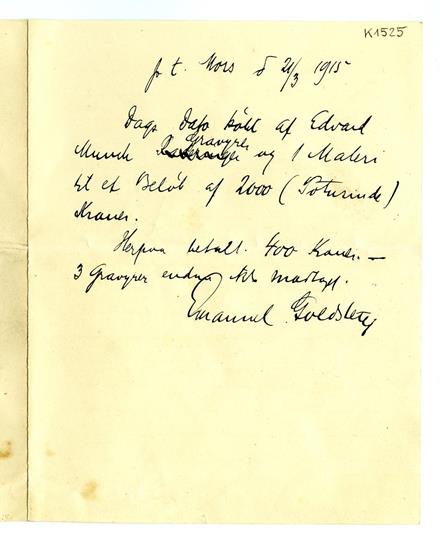 K1525
p t. Mors d 21/3 1915
Dags Dato købt af Edvard
Gravyrer
Munch og 1 Maleri
til et Beløb af 2000 (Totusinde)
Kroner.
Herpaa betalt 400 Kroner. —
3 Gravyrer endnu ikke modtaget.
Emanuel Goldstein